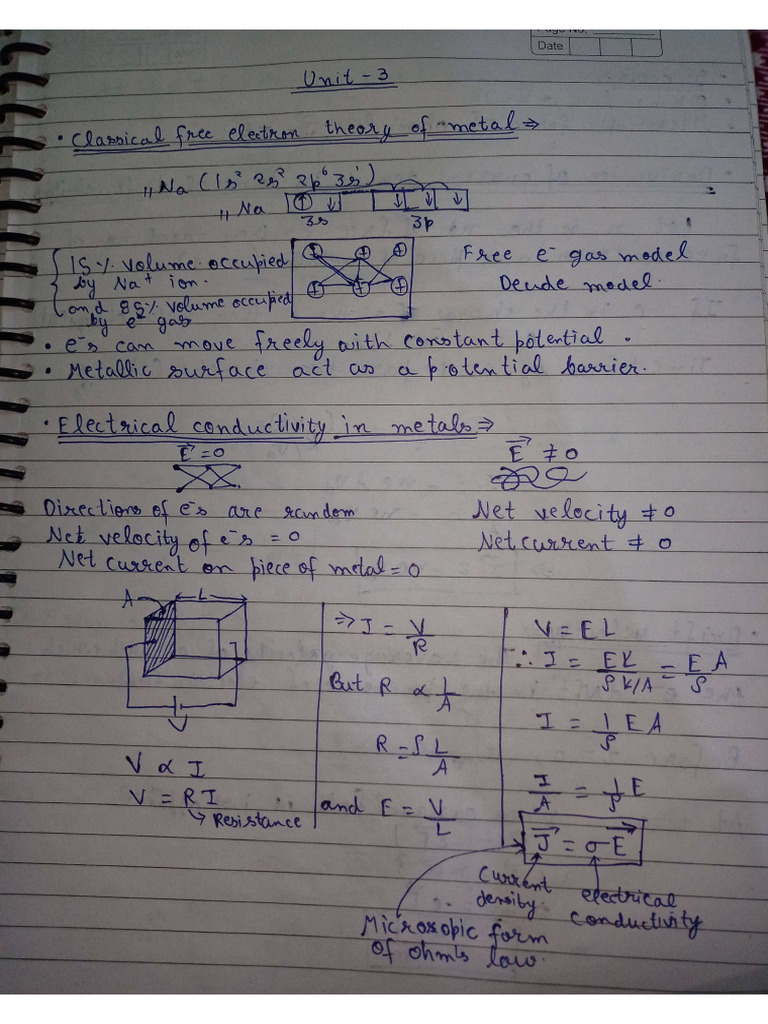 Page No.
Date
Unit - 3
• Classical free electron theory of metal ⇒
₁₁Na (1s² 2s² 2p⁶ 3s¹)
₁₁Na ↑ ↓ ↓ ↓ ↓
3s 3p
15% volume occupied
by Na⁺ ion.
and 85% volume occupied
by e⁻ gas
+ + +
+ + +
Free e⁻ gas model
Deude model.
• e⁻s can move freely with constant potential.
• Metallic surface act as a potential barrier.
• Electrical conductivity in metals ⇒
E⃗ = 0
Directions of e⁻s are random
Net velocity of e⁻s = 0
Net current on piece of metal = 0
E⃗ ≠ 0
Net velocity ≠ 0
Net current ≠ 0
A L
V
V ∝ I
V = RI
→ Resistance
⇒ I = V/R
But R ∝ 1/A
R = ρ L/A
and E = V/L
V = EL
∴ I = EL/ρL/A = E/ρ A
I = 1/ρ EA
I/A = 1/ρ E
J⃗ = σE⃗
Current
density
electrical
conductivity
Microsopic form
of ohm's law.